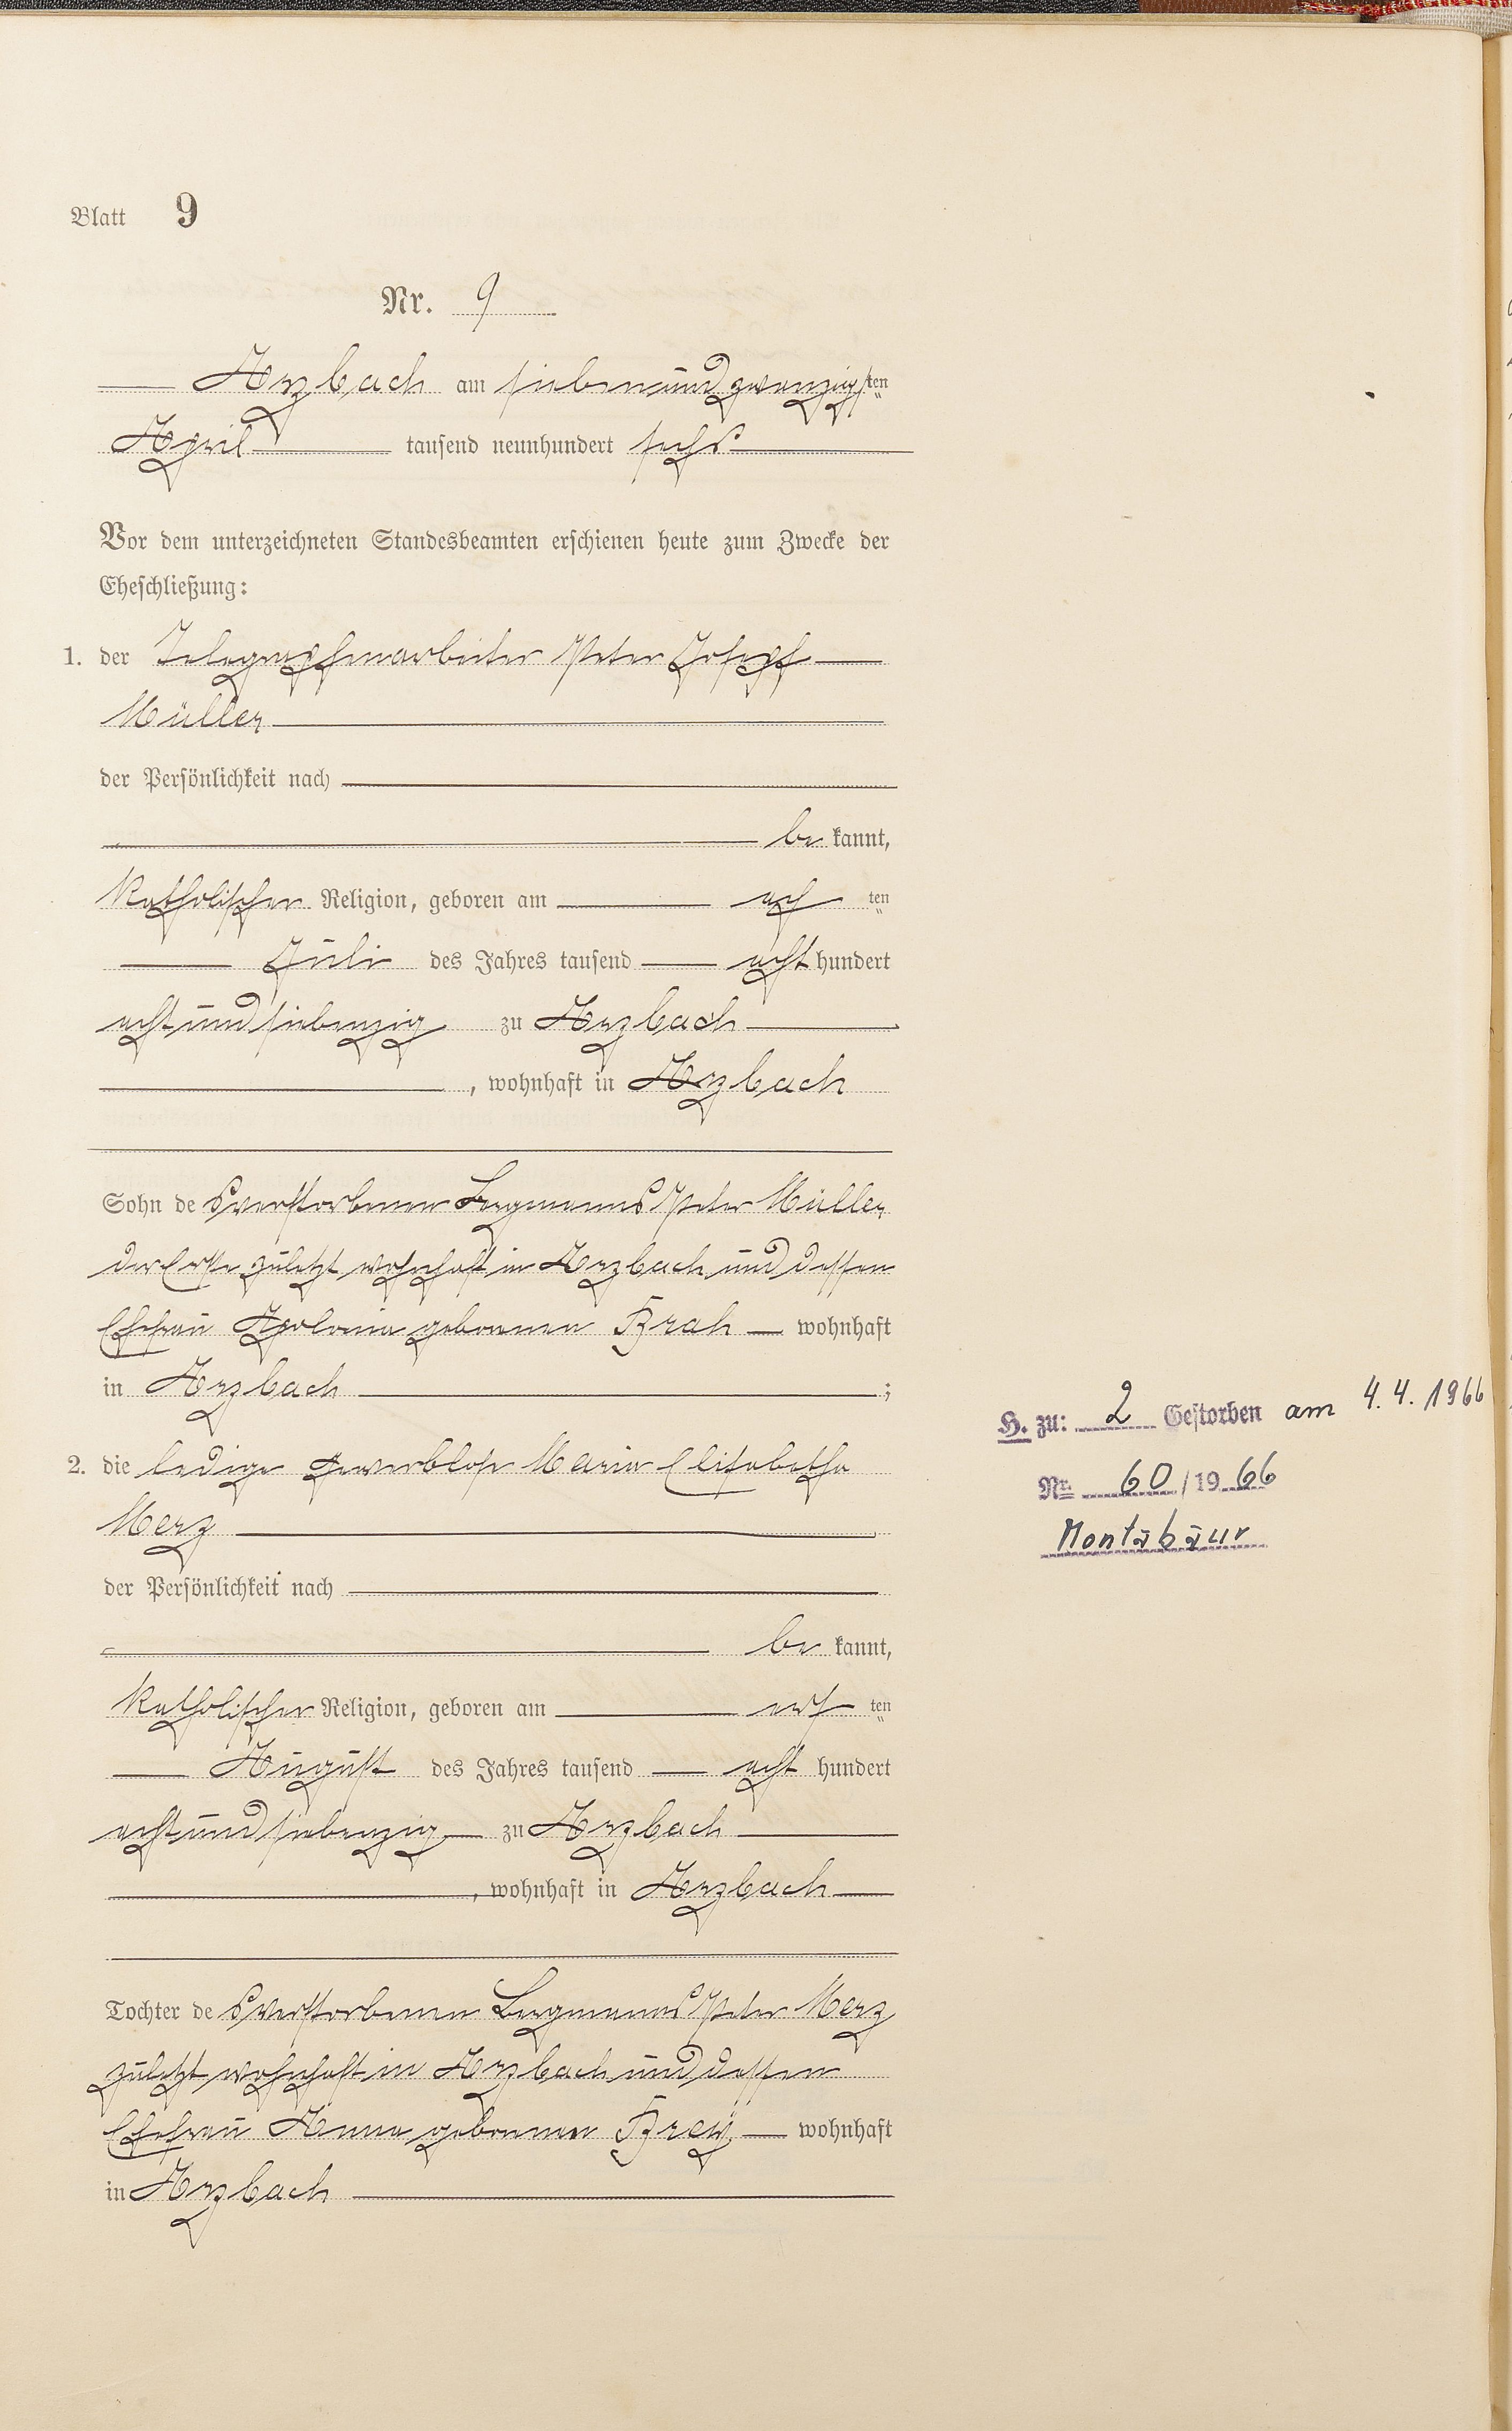 Blatt 9
Nr. 9
Arzbach am siebenundzwanzigsten
April tausend neunhundert sechs
Vor dem unterzeichneten Standesbeamten erschienen heute zum Zwecke der
Eheschließung:
1. der Telegraphenarbeiter Peter Joseph
Müller
der Persönlichkeit nach
be kannt,
katholischer Religion, geboren am ach ten
Juli des Jahres tausend acht hundert
achtundsiebenzig zu Arzbach
, wohnhaft in Arzbach
Sohn des verstorbenen Bergmanns Peter Müller
der Erste zuletzt wohnhaft in Arzbach und dessen
Ehefrau Apolonia geborenen Brah wohnhaft
in Arzbach ;
2. die ledige gewerblose Maria Elisabetha
Merz
der Persönlichkeit nach
be kannt,
katholischer Religion, geboren am ers ten
August des Jahres tausend acht hundert
achtundsiebenzig zu Arzbach
, wohnhaft in Arzbach
Tochter des verstorbenen Bergmanns Peter Merz
zuletzt wohnhaft in Arzbach und dessen
Ehefrau Anna geborenen Breÿ wohnhaft
in Arzbach
H. zu: 2 Gestorben am 4.4.1966
Nr. 60/1966
Montabaur